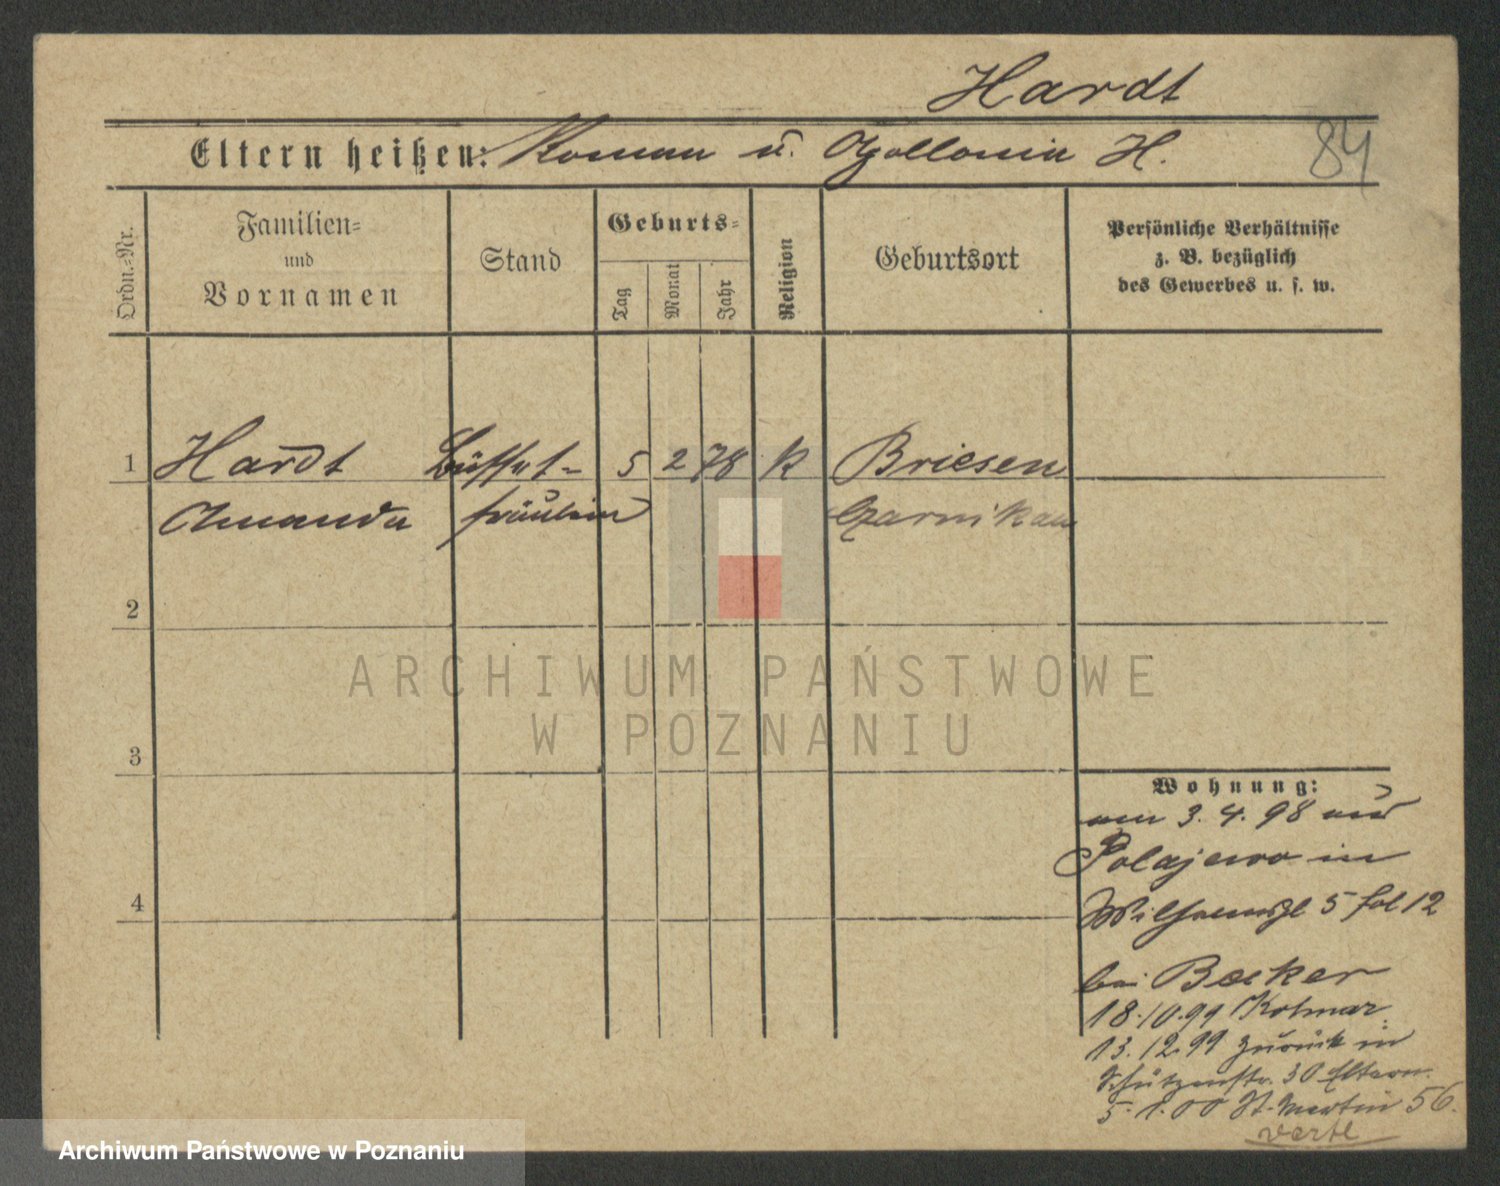 Hardt
Eltern heißen: Roman u. Apollonia H.
84
Ordn.-Nr.
Familien-
und
Vornamen
Stand
Geburts-
Tag
Monat
Jahr
Religion
Geburtsort
Persönliche Verhältnisse
z. B. bezüglich
des Gewerbes u. s. w.
1 Hardt Büffet- 5 2 78 k Briesen
Amanda fräulein Czarnikau
2
ARCHIWUM PAŃSTWOWE
W POZNANIU
3
Wohnung:
am 3. 4. 98 aus
Polajewo in
5 fol 12
4
bei Becker
18.10.99 Kolmar
13.12.99 zurück in
Schützenstr. 30 Eltern.
5. 1. 00 St. Martin 56.
vertl
Archiwum Państwowe w Poznaniu